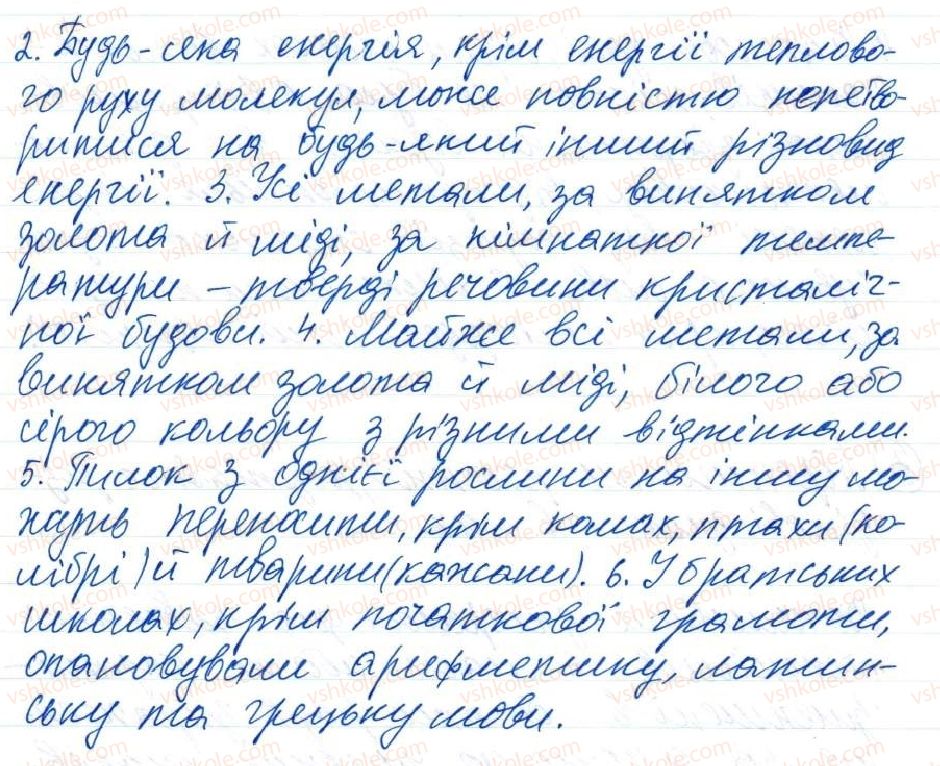 2. Будь-яка енергія, крім енергії теплово-
го руху молекул, може повністю перетво-
ритися на будь-який інший різновид
енергії. 3. Усі метали, за винятком
золота й міді, за кімнатної темпе-
ратури – тверді речовини кристаліч-
ної будови. 4. Майже всі метали, за
винятком золота й міді, білого або
сірого кольору з різними відтінками.
5. Пилок з однієї рослини на іншу мо-
жуть переносити, крім комах, птахи (ко-
лібрі) й тварини (кажани). 6. У братських
школах, крім початкової грамоти,
опановували арифметику, латин-
ську та грецьку мови.